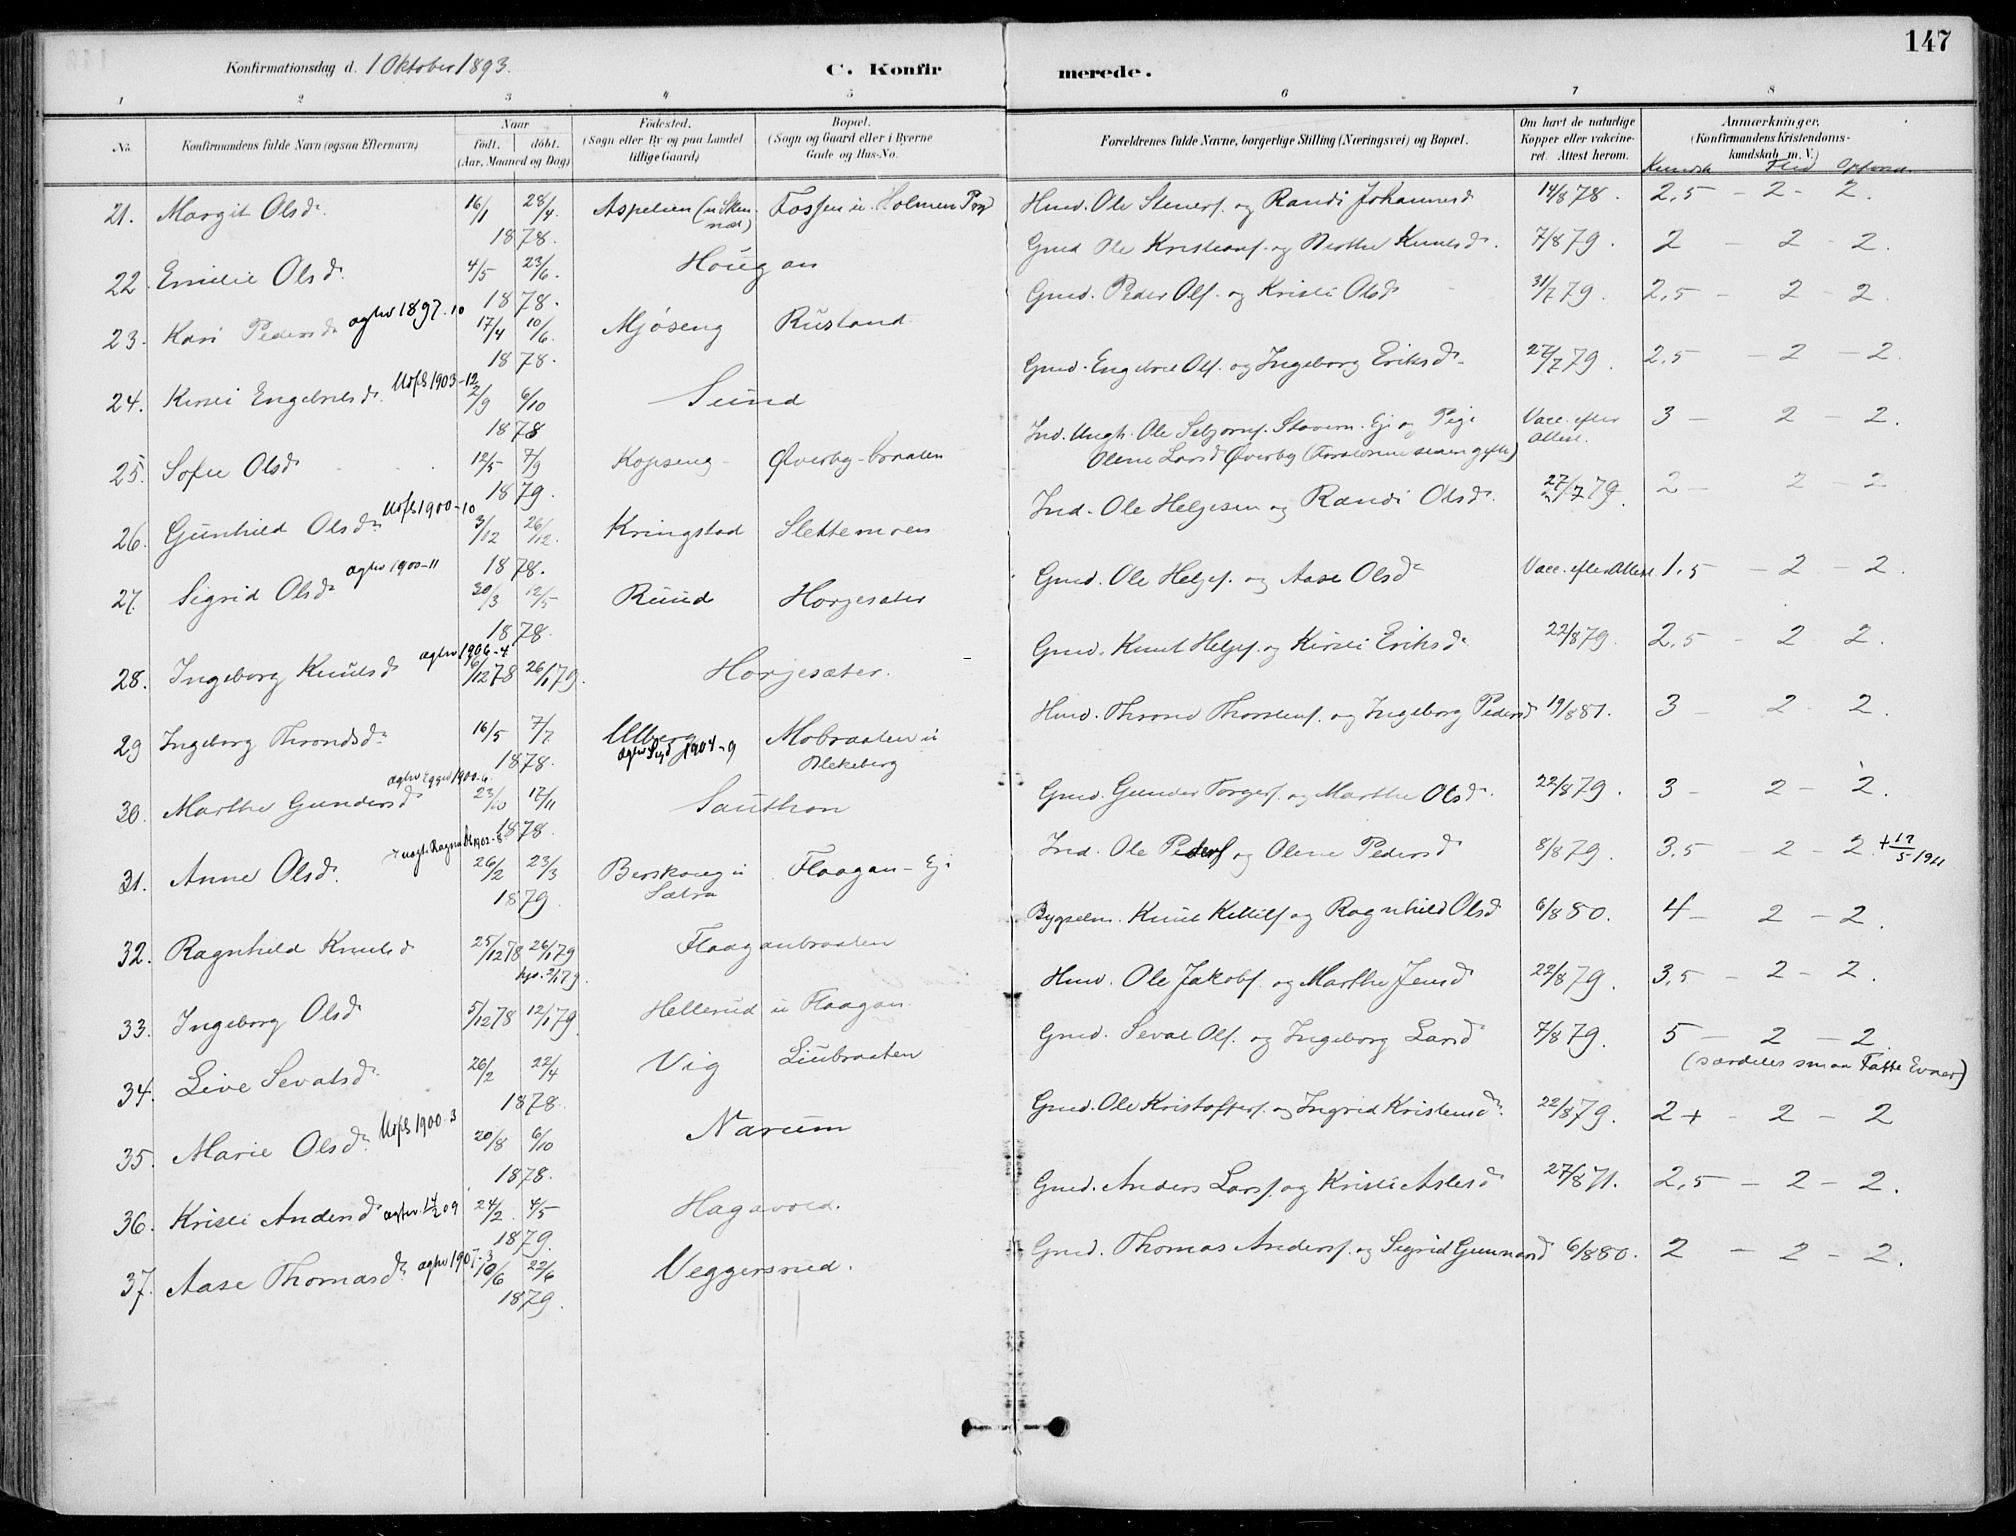 147
Konfirmationsdag d. 1 Oktober 1893.
C. Konfirmerede.
1 2 3 4 5 6 7 8
No. Konfirmandens fulde Navn (ogsaa Efternavn)
Naar født. døbt. (Aar, Maaned og Dag)
Fødested. (Sogn eller By og paa Landet tillige Gaard)
Bopæl. (Sogn og Gaard eller i Byerne Gade og Hus-No.
Forældrenes fulde Navne, borgerlige Stilling (Næringsvei) og Bopæl.
Om havt de naturlige Kopper eller vakcineret. Attest herom.
Anmærkninger, (Konfirmandens Kristendomskundskab m. V.)
Kundsk. Flid Opførsel
21. Margit Olsd. 16/1 28/4 1878. Aspelien Fossen u. Holmen Hmd. Ole Stenerf. og Randi Johannesd 14/8 78. 2,5 - 2 - 2.
22. Emilie Olsd. 4/5 23/6 1878. Hougan Gmd Ole Kristianf. og Berthe Knutsd. 7/8 79. 2 - 2 - 2.
23. Kari Pedersd. 17/4 10/6 1878. Mjøseng Rustand Gmd. Peder Olf. og Kristi Olsd 31/7 79. 2,5 - 2 2.
agtev 1897. 10
24. Kirsti Engebretsd. 2/9 6/10 1878 Sund Gmd. Engebret Olf. og Ingeborg Eriksd. 27/7 79. 2,5 - 2 - 2.
Udfl 1903-12
25. Sofie Olsd 12/5 7/9 1879. Kopseng Øverby-braaten Ind. Ungk. Ole Sebjørnf. Stavern. Ej og Pige Vacc. efter Attest. 3 - 2 - 2.
Olene Larsd Øverby (Forældrene senere gifte)
26. Gunhild Olsd. 3/12 26/12. 1878. Kringstad Slettemoen Ind. Ole Helgesen og Randi Olsd. 27/7 79. 2 - 2 - 2
Udfl 1900-10
27. Sigrid Olsd. 30/3 12/5 1878. Ruud Horjesæter Gmd. Ole Helgef. og Aase Olsd. Vacc. efter Attest 1,5 - 2 - 2.
agtev 1900-11
28. Ingeborg Knutsd. 6/12 78 26/1 79. Horjesæter. Gmd. Knut Helgef. og Kirsti Eriksd. 22/8 79. 2,5 - 2 2.
agtev 1906-4
29 Ingeborg Throndsd. 16/5 7/7 1878. Ulberg Mobraaten u Blekeberg Hmd. Thrond Thorstenf. og Ingeborg Pedersd 19/8 81. 3 - 2 - 2.
agtev Sigd 1904-9
30. Marthe Gundersd 23/10 17/11 1878. Sauthon Gmd. Gunder Torgerf. og Marthe Olsd. 22/8 79. 3 - 2 - 2.
31. Anne Olsd. 26/2 23/3 1879. Berskoug u Sætra Flaagan-Ej. Ind. Ole Pederf og Olene Pedersd 8/8 79. 3,5 - 2 - 2. + 17/5 1911
32. Ragnhild Knutsd 25/12 78 26/1 79 hjd. 2/1 79. Flaaganbraaten Bygselm. Knut Kittilf og Ragnhild Olsd 6/8 80. 4 - 2 - 2.
33. Ingeborg Olsd 5/12 78 12/1 79. Hellerud u Flaagan. Hmd. Ole Jakobf. og Marthe Jensd. 22/8 79. 3,5 - 2 - 2.
34. Live Sevatsd. 26/2 22/4 1878. Vig Liubraaten Gmd. Sevat Olf. og Ingeborg Larsd. 7/8 79. 5 - 2 - 2.
(særdeles smaa Fatte Evner)
35. Marie Olsd. 20/8 6/10 1878. Narum Gmd. Ole Kristofferf. og Ingrid Kristensd. 22/8 79. 2+ - 2 - 2
Udfl 1900-3
36. Kristi Andersd. 24/2. 4/5 1879. Hagavold. Gmd. Anders Larsf. og Kristi Aslesd. 27/8 71. 2,5 - 2 - 2.
37. Aase Thomasd. 10/6 22/6 1879. Veggersrud. Gmd. Thomas Andersf. og Sigrid Gunnarsd 6/8 80. 2 - 2 - 2.